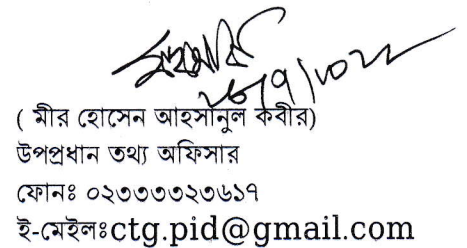 ( মীর হোসেন আহসানুল কবীর)
উপপ্রধান তথ্য অফিসার
ফোনঃ ০২৩৩৩৩২৩৬১৭
ই-মেইলঃctg.pid@gmail.com